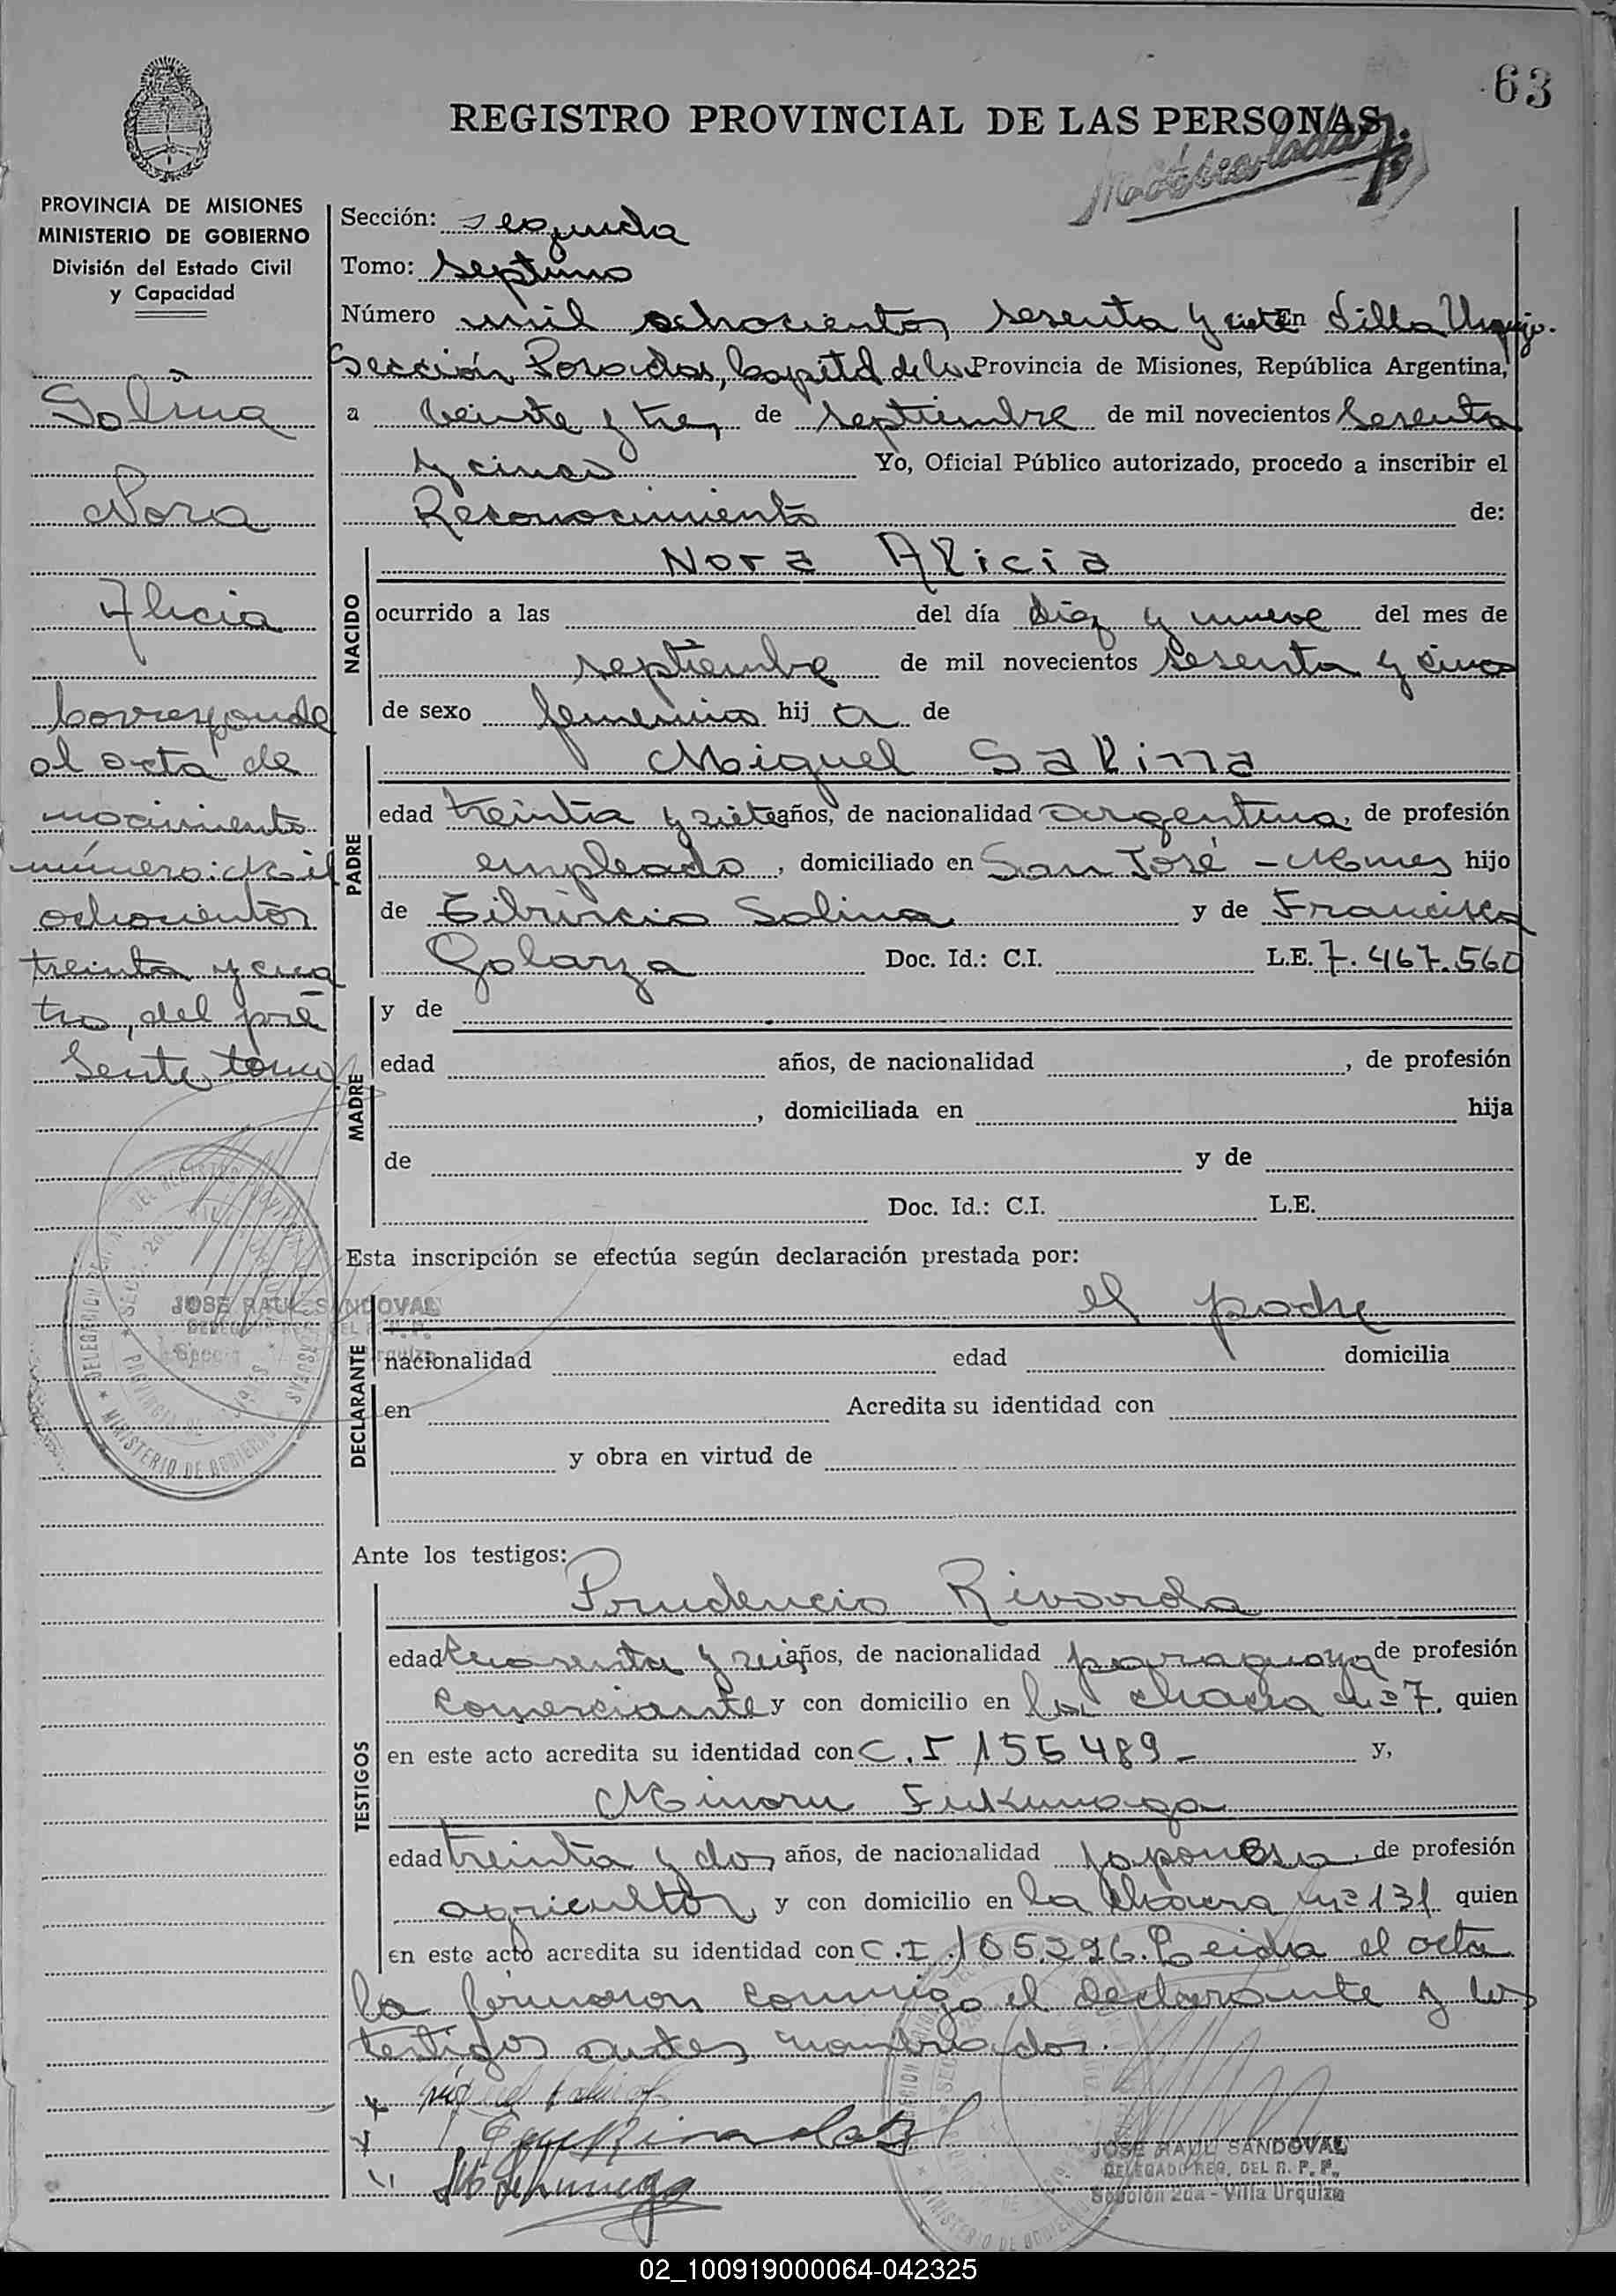 63
REGISTRO PROVINCIAL DE LAS PERSONAS
Matriculada
PROVINCIA DE MISIONES
MINISTERIO DE GOBIERNO
División del Estado Civil
y Capacidad
Salina
Nora
Alicia
Corresponde
al acta de
nacimiento
número: Mil
ochocientos
treinta y cua
tro, del pre
sente tomo
JOSE RAUL SANDOVAL
Sección: segunda
Tomo: septimo
Número mil ochocientos sesenta y siete En Villa Urquiza.
Sección Posadas, Capital de la Provincia de Misiones, República Argentina,
a veinte y tres de septiembre de mil novecientos sesenta
y cinco Yo, Oficial Público autorizado, procedo a inscribir el
Reconocimiento de:
NACIDO
Nora Alicia
ocurrido a las del día diez y nueve del mes de
septiembre de mil novecientos sesenta y cinco
de sexo femenino hij a de
PADRE
Miguel Salina
edad treinta y siete años, de nacionalidad argentina, de profesión
empleado, domiciliado en San José - Mnes hijo
de Tiburcio Salina y de Francisca
Golarza Doc. Id.: C.I. L.E. 7.467.560
MADRE
y de
edad años, de nacionalidad , de profesión
, domiciliada en hija
de y de
Doc. Id.: C.I. L.E.
Esta inscripción se efectúa según declaración prestada por:
DECLARANTE
el padre
nacionalidad edad domicilia
en Acredita su identidad con
y obra en virtud de
Ante los testigos:
TESTIGOS
Prudencio Rivarola
edad cuarenta y seis años, de nacionalidad paraguaya de profesión
comerciante y con domicilio en la chacra nº 7, quien
en este acto acredita su identidad con C.I 155489- y,
Minoru Fukunaga
edad treinta y dos años, de nacionalidad japonesa, de profesión
agricultor, y con domicilio en la chacra nº 131 quien
en este acto acredita su identidad con C.I. 105.296. Leida el acta
la firmaron conmigo el declarante y los
testigos antes nombrados.
JOSE RAUL SANDOVAL
DELEGADO REG. DEL R. P. P.
Sección 2da - Villa Urquiza
02_100919000064-042325